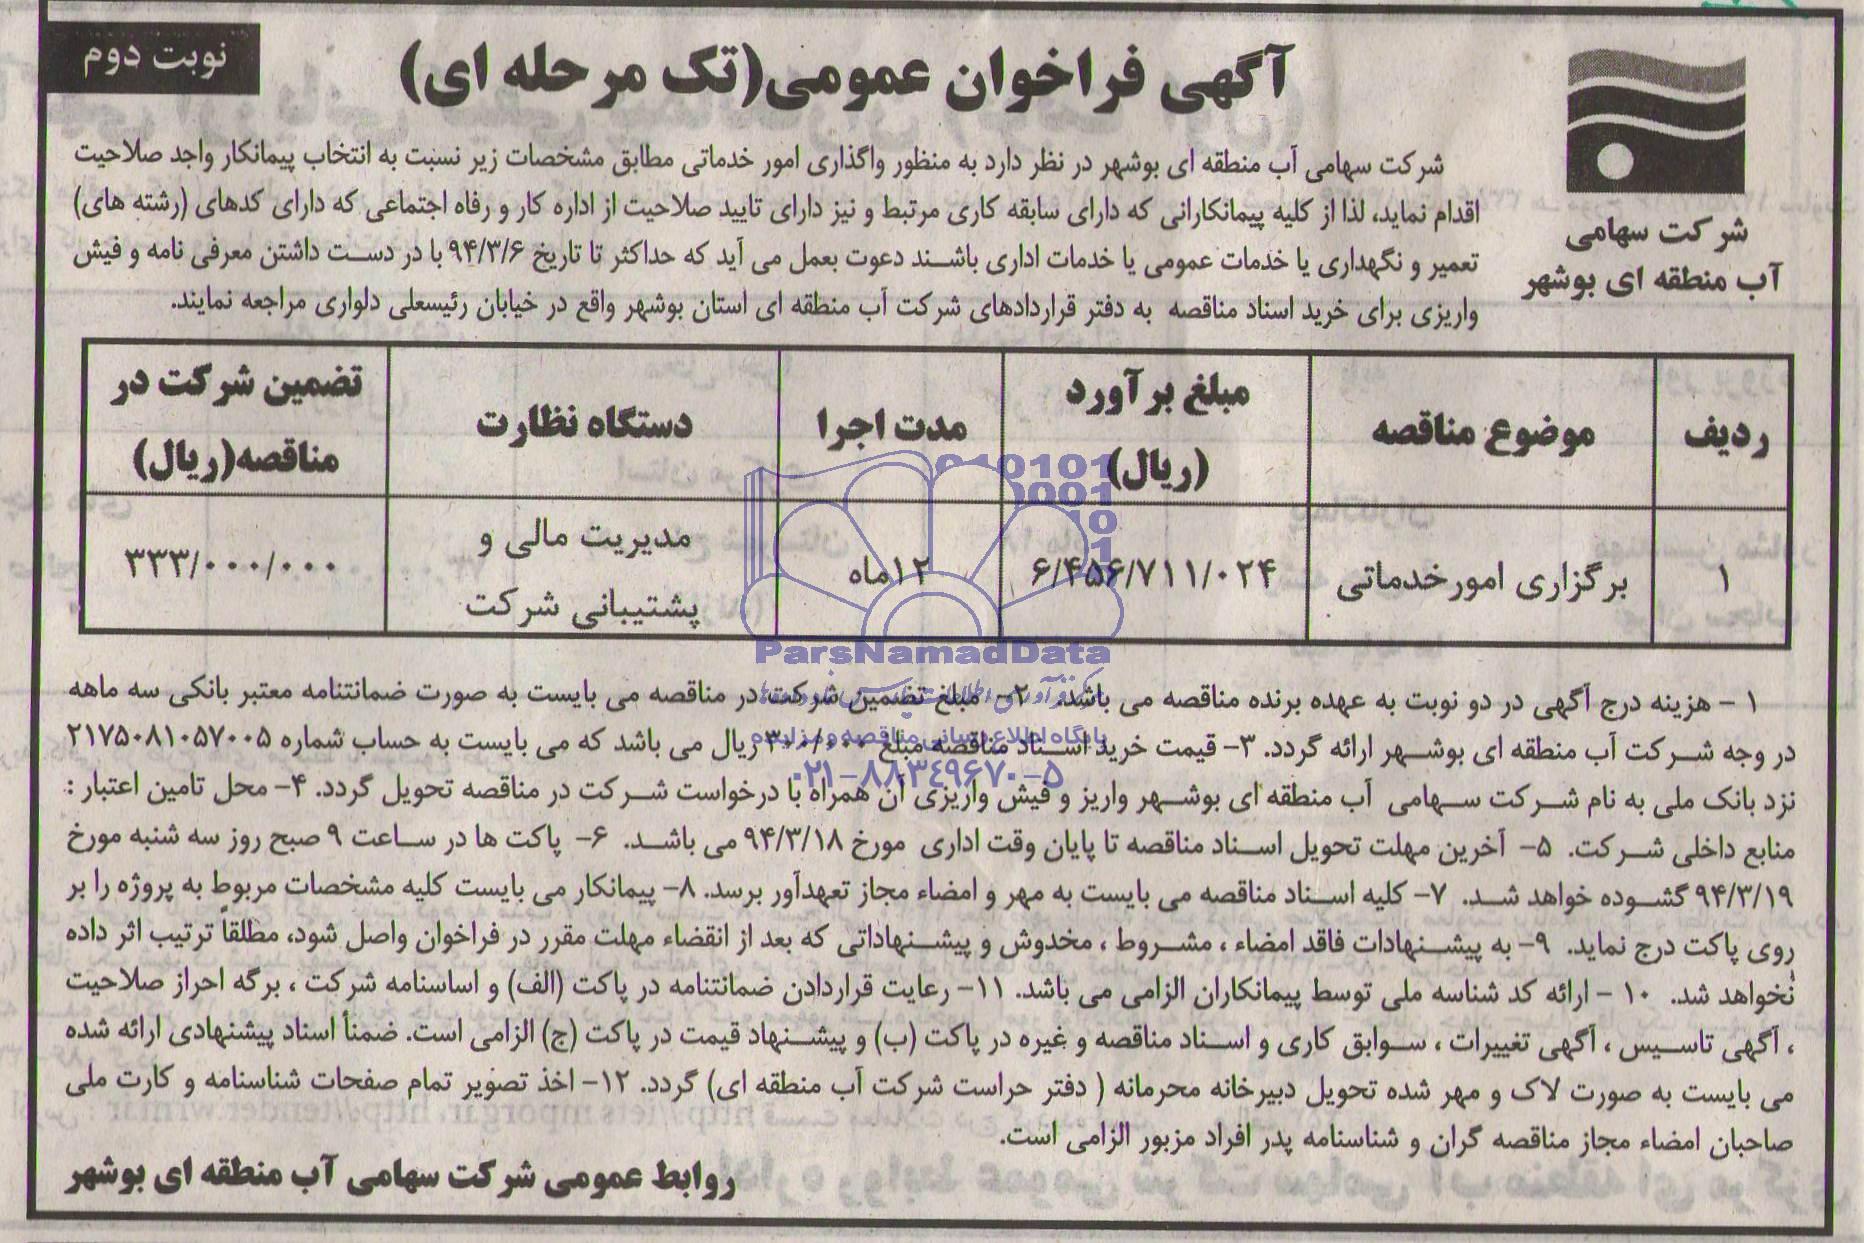 نوبت دوم
آگهی فراخوان عمومی(تک مرحله ای)
شرکت سهامی
آب منطقه ای بوشهر
شرکت سهامی آب منطقه ای بوشهر در نظر دارد به منظور واگذاری امور خدماتی مطابق مشخصات زیر نسبت به انتخاب پیمانکار واجد صلاحیت
اقدام نماید، لذا از کلیه پیمانکارانی که دارای سابقه کاری مرتبط و نیز دارای تایید صلاحیت از اداره کار و رفاه اجتماعی که دارای کدهای (رشته های)
تعمیر و نگهداری یا خدمات عمومی یا خدمات اداری باشند دعوت بعمل می آید که حداکثر تا تاریخ ۹۴/۳/۶ با در دست داشتن معرفی نامه و فیش
واریزی برای خرید اسناد مناقصه به دفتر قراردادهای شرکت آب منطقه ای استان بوشهر واقع در خیابان رئیسعلی دلواری مراجعه نمایند.
ردیف موضوع مناقصه مبلغ برآورد (ریال) مدت اجرا دستگاه نظارت تضمین شرکت در مناقصه(ریال)
۱ برگزاری امورخدماتی ۶/۴۵۶/۷۱۱/۰۲۴ ۱۲ماه مدیریت مالی و پشتیبانی شرکت ۳۳۳/۰۰۰/۰۰۰
۱ – هزینه درج آگهی در دو نوبت به عهده برنده مناقصه می باشد. ۲- مبلغ تضمین شرکت در مناقصه می بایست به صورت ضمانتنامه معتبر بانکی سه ماهه
در وجه شرکت آب منطقه ای بوشهر ارائه گردد. ۳- قیمت خرید اسناد مناقصه مبلغ ۳۰۰/۰۰۰ ریال می باشد که می بایست به حساب شماره ۲۱۷۵۰۸۱۰۵۷۰۰۵
نزد بانک ملی به نام شرکت سهامی آب منطقه ای بوشهر واریز و فیش واریزی آن همراه با درخواست شرکت در مناقصه تحویل گردد. ۴- محل تامین اعتبار :
منابع داخلی شرکت. ۵- آخرین مهلت تحویل اسناد مناقصه تا پایان وقت اداری مورخ ۹۴/۳/۱۸ می باشد. ۶- پاکت ها در ساعت ۹ صبح روز سه شنبه مورخ
۹۴/۳/۱۹ گشوده خواهد شد. ۷- کلیه اسناد مناقصه می بایست به مهر و امضاء مجاز تعهدآور برسد. ۸- پیمانکار می بایست کلیه مشخصات مربوط به پروژه را بر
روی پاکت درج نماید. ۹- به پیشنهادات فاقد امضاء ، مشروط ، مخدوش و پیشنهاداتی که بعد از انقضاء مهلت مقرر در فراخوان واصل شود، مطلقاً ترتیب اثر داده
نخواهد شد. ۱۰ – ارائه کد شناسه ملی توسط پیمانکاران الزامی می باشد. ۱۱- رعایت قراردادن ضمانتنامه در پاکت (الف) و اساسنامه شرکت ، برگه احراز صلاحیت
، آگهی تاسیس ، آگهی تغییرات ، سوابق کاری و اسناد مناقصه و غیره در پاکت (ب) و پیشنهاد قیمت در پاکت (ج) الزامی است. ضمناً اسناد پیشنهادی ارائه شده
می بایست به صورت لاک و مهر شده تحویل دبیرخانه محرمانه ( دفتر حراست شرکت آب منطقه ای) گردد. ۱۲- اخذ تصویر تمام صفحات شناسنامه و کارت ملی
صاحبان امضاء مجاز مناقصه گران و شناسنامه پدر افراد مزبور الزامی است.
روابط عمومی شرکت سهامی آب منطقه ای بوشهر
ParsNamadData
پایگاه اطلاع رسانی مناقصه و مزایده
۰۲۱-۸۸۳۴۹۶۷۰-۵